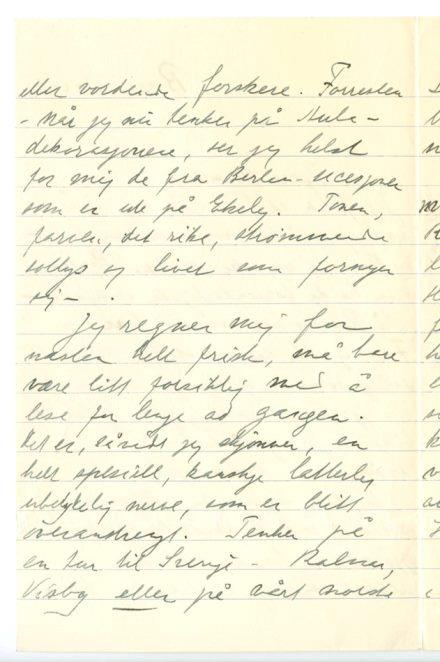 eller vordende forskere. Forresten
- når jeg nu tenker på Aula-
dekorasjonene, ser jeg helst
for mig de fra Berlin-Secesjonen
som er ute på Ekely. Tonen,
farven, det rike, strømmende
sollys og livet som fornyer
sig - .
Jeg regner mig for
næsten helt frisk, må bare
være litt forsiktig med å
lese for lenge ad gangen.
Det er, såvidt jeg skjønner, en
helt spesiell, kanskje latterlig
ubetydelig nerve, som er blitt
overanstrengt. Tenker på
en tur til Sverige - Kalmar,
Visby eller på vårt norske